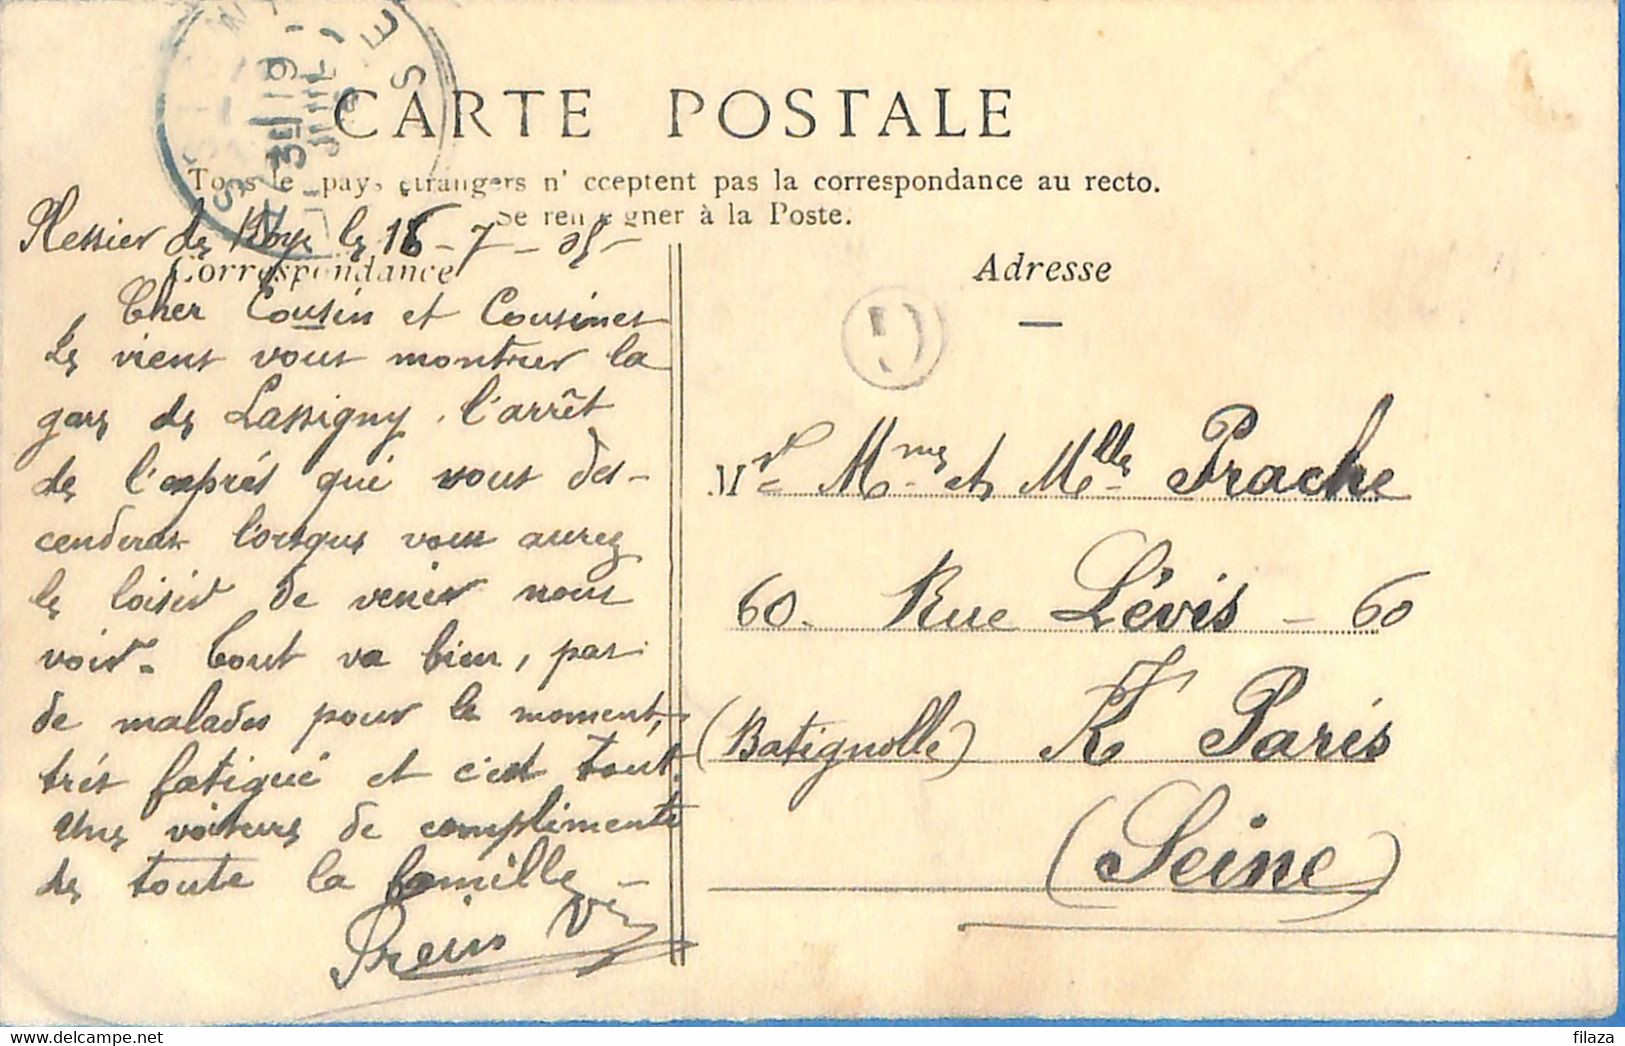 CARTE POSTALE
Tous le pays étrangers n' cceptent pas la correspondance au recto.
Se ren egner à la Poste.
Plessier de Roye le 16-7-05-
Correspondance
Adresse
Cher Cousin et Cousines
Je viens vous montrer la
gare de Lassigny. l'arrêt
de l'exprés qui vous des-
cendera lorsque vous aurez
le loisir de venir nous
voir. Tout va bien, pas
de malades pour le moment,
trés fatigué et c'est tout.
Une voiture de compliments
de toute la famille -
Mr Mme et Mlle Prache
60. Rue Lévis - 60
(Batignolle) Paris
(Seine)
filaza